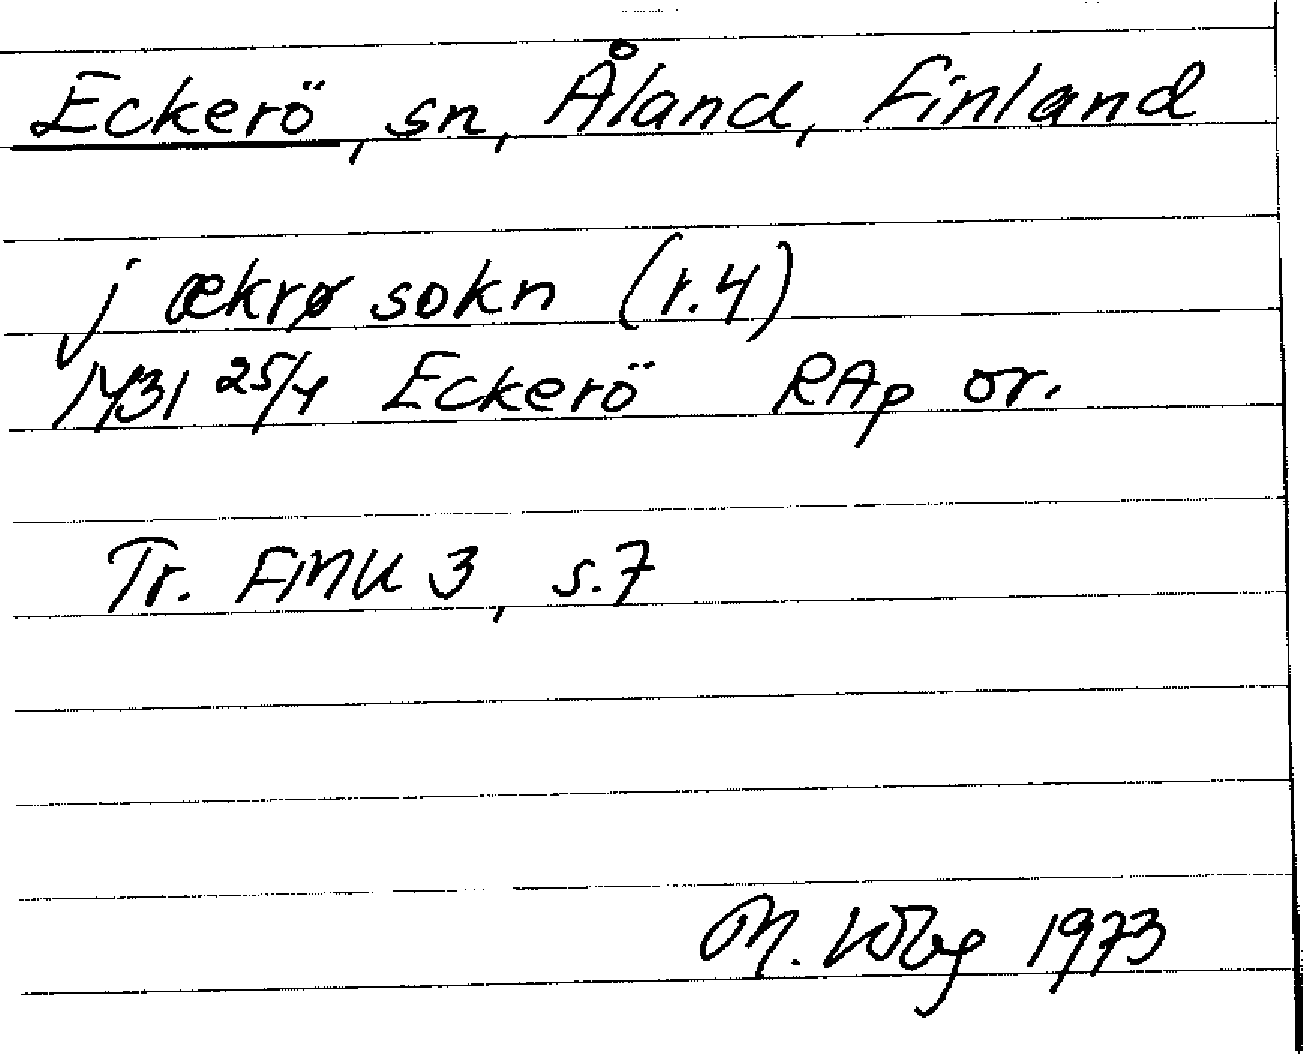 Eckerö, sn, Åland, Finland
j ækrø sokn (r.4)
1431 25/4 Eckerö RAp or.
Tr. FMU 3, s.7
M. 1973